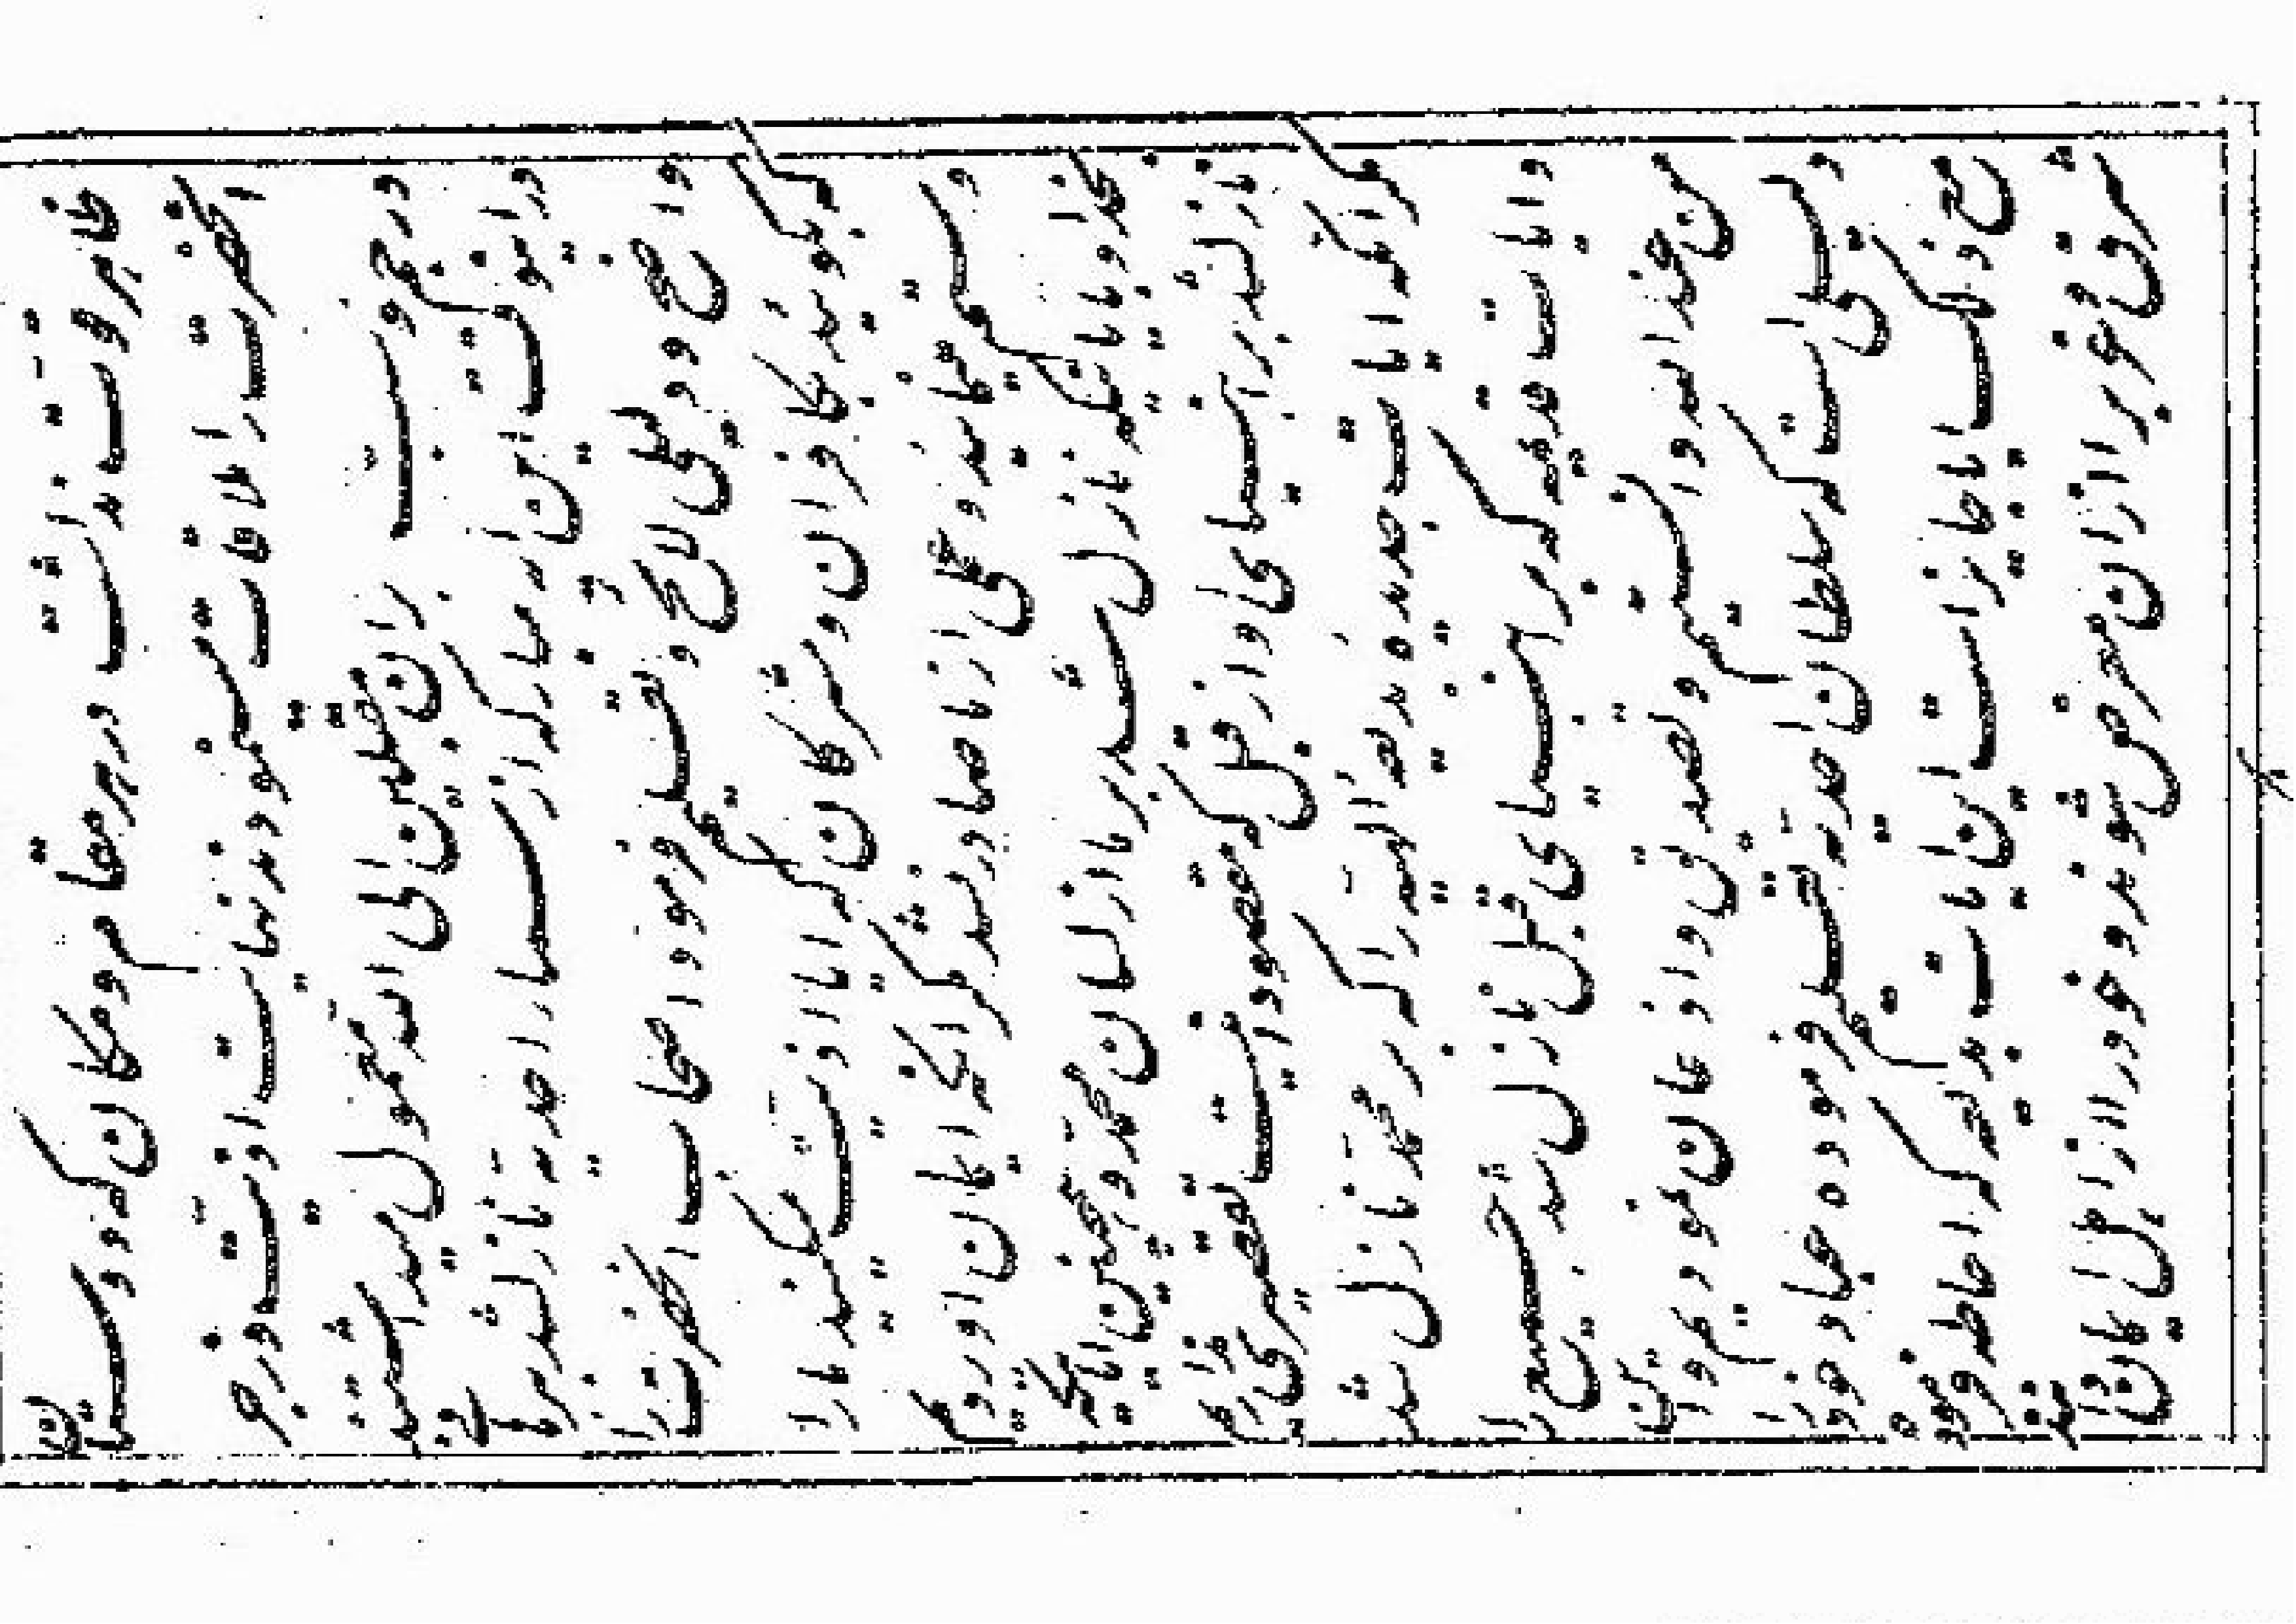 ظاهر قوت نداشت در هر جا و هر مکان که دوستان
انحضرت را ملاقات مینمودند نهایت اذیت و زجر
و رجم و سب بان الی الله مبذول میداشتند
در انوقت این ایه مبارکه از سماء احدیه نازل شد ببرهانی
واضح و دلیلی لائح و تعلیم فرمود اصحاب انحضرت را
که بگویند بکافران و مشرکان که ایا اذیت میکنید ما را
و ستم مینمائید و عملی از ما صادر نشد مگر انکه ایمان اوردیم
بخدا و بایاتیکه نازل شد بر ما از لسان محمد و همچنین بایاتیکه
نازل شد بر انبیای او از قبل که مقصود اینست تقصیری نداریم
مگر انکه ایات جدیده بدیعه الهیه را که بر محمد نازل شد
و ایات قدیمه که بر انبیای قبل نازل شد جمیع را
من عند الله دانستیم و تصدیق و اذعان نمودیم و این
دلیلی است که سلطان احدیه تعلیم فرموده عباد خود را
مع ذلک ایا جائز است این ایات بدیعه که احاطه فرموده
شرق و غرب را از ان معرض شوند و خود را از اهل ایمان دانند